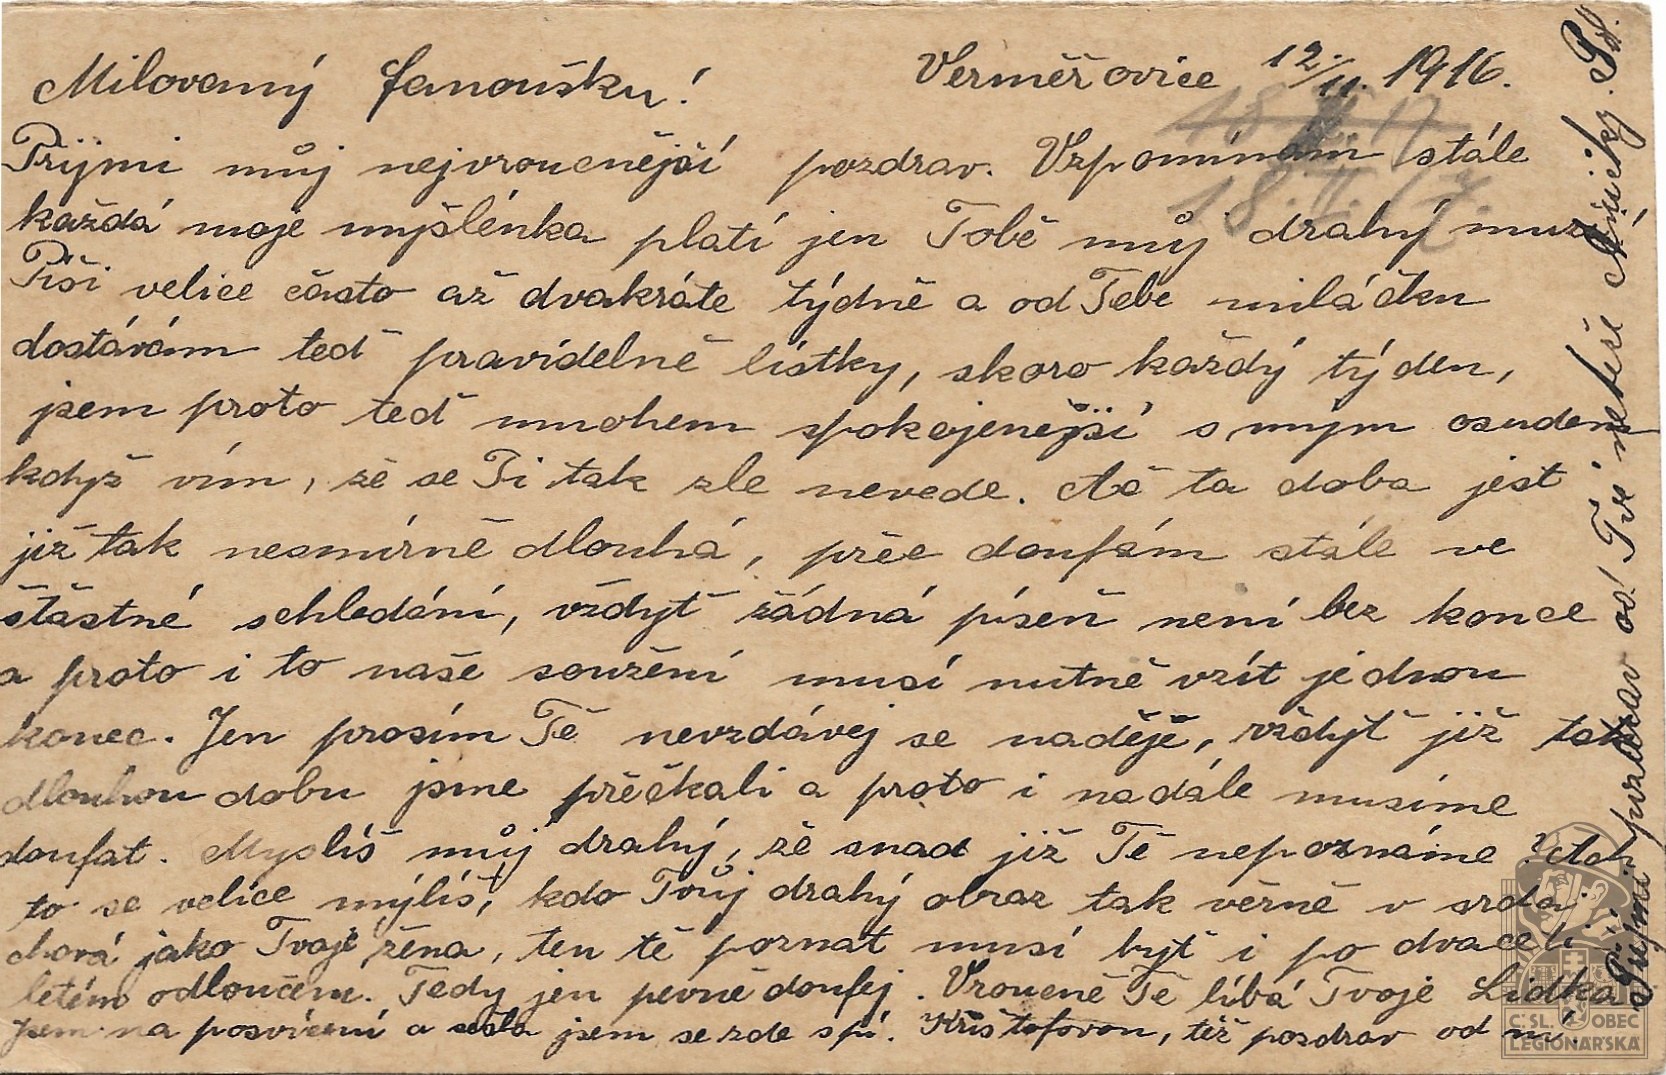 Milovaný Fanoušku! Verměřovice 12./11. 1916.
18. II. 17
18. II. 17.
Přijmi můj nejvroucnější pozdrav. Vzpomínám stále
každá moje myšlénka platí jen Tobě můj drahý muži
Píši velice často až dvakráte týdně a od Tebe miláčku
dostávám teď pravidelně lístky, skoro každý týden,
jsem proto teď mnohem spokojenější s mým osudem
když vím, že se Ti tak zle nevede. Ač ta doba jest
již tak nesmírně dlouhá, přec doufám stále ve
šťastné schledání, vždyť žádná píseň není bez konce
a proto i to naše soužení musí nutně vzít jednou
konec. Jen prosím Tě nevzdávej se naděje, vždyť již tak
dlouhou dobu jsme přečkali a proto i nadále musíme
doufat. Myslíš můj drahý, že snad již Tě nepoznáme? Ach
to se velice mýlíš, kdo Tvůj drahý obraz tak věrně v srdci
chová jako Tvoje žena, ten tě poznat musí byť i po dvaceti
letém odloučení. Tedy jen pevně doufej. Vroucně Tě líbá Tvoje Lidka
Jsem na posvícení a sešla jsem se zde s pí. Krištofovou, též pozdrav od ní.
Přijmi pozdrav od Tvé neteře
Č'SL. OBEC
LEGIONÁŘSKÁ